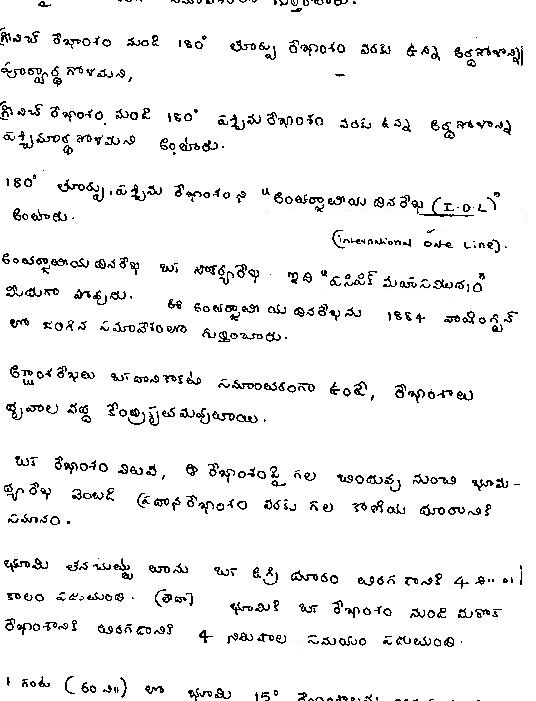 గ్రీనిచ్ రేఖాంశం నుండి 180° తూర్పు రేఖాంశం వరకు ఉన్న అర్ధగోళాన్ని
పూర్వార్ధగోళమని,
గ్రీనిచ్ రేఖాంశం నుండి 180° పశ్చిమ రేఖాంశం వరకు ఉన్న అర్ధగోళాన్ని
పశ్చిమార్ధగోళమని అంటారు.
180° తూర్పు, పశ్చిమ రేఖాంశం ని "అంతర్జాతీయ దినరేఖ (I.D.L)"
అంటారు.
(International Date Line).
అంతర్జాతీయ దినరేఖ ఒక రేఖ. ఇది "పసిఫిక్ మహాసముద్రం"
మీదుగా పోవును. ఈ అంతర్జాతీయ దినరేఖను 1884 వాషింగ్టన్
లో జరిగిన సమావేశంలో గుర్తించారు.
అక్షాంశరేఖలు ఒకదానికొకటి సమాంతరంగా ఉండి, రేఖాంశాలు
ధృవాల వద్ద కేంద్రీకృతమవుతాయి.
ఒక రేఖాంశం విలువ, ఆ రేఖాంశంపై గల బిందువు నుంచి భూమ-
ధ్యరేఖ వెంబడి ప్రధానరేఖాంశం వరకు గల కోణీయ దూరానికి
సమానం.
భూమి తనచుట్టు తాను ఒక డిగ్రీ దూరం తిరగడానికి 4 ని
కాలం పడుతుంది. (లేదా) భూమికి ఒక రేఖాంశం నుండి మరొక
రేఖాంశానికి తిరగడానికి 4 నిమిషాల సమయం పడుతుంది.
1 గంట (60 ని॥) లో భూమి 15°